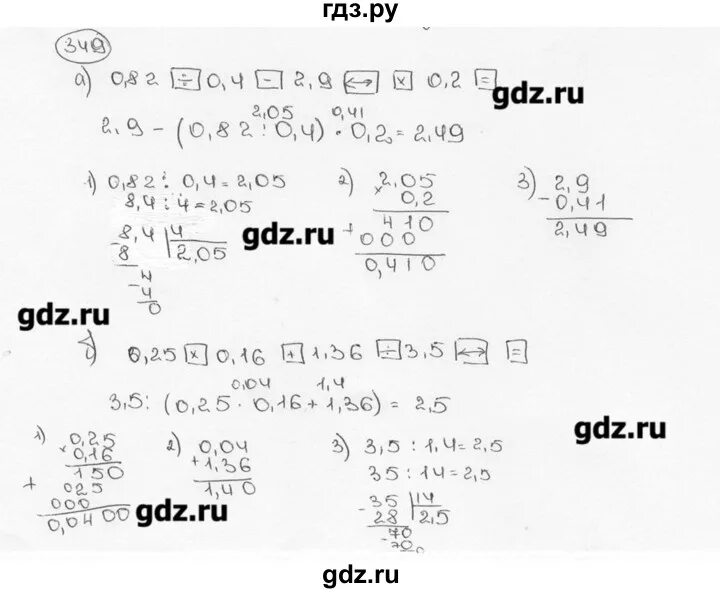 гдз.ру
349
а) 0,82 ÷ 0,4 - 2,9 ↔ × 0,2 =
gdz.ru
2,05 0,41
2,9 - (0,82 : 0,4) · 0,2 = 2,49
1) 0,82 : 0,4 = 2,05
8,4 : 4 = 2,05
8,4 4
- 8 2,05
4
- 4
0
2) 2,05
× 0,2
410
+ 000
0,410
3) 2,9
- 0,41
2,49
gdz.ru
gdz.ru
б) 0,25 × 0,16 + 1,36 ÷ 3,5 ↔ =
0,04 1,4
3,5 : (0,25 · 0,16 + 1,36) = 2,5
gdz.ru
1) 0,25
× 0,16
150
+ 025
000
0,0400
2) 0,04
+ 1,36
1,40
gdz.ru
3) 3,5 : 1,4 = 2,5
35 : 14 = 2,5
- 35 14
28 2,5
70
- 70
0
gdz.ru